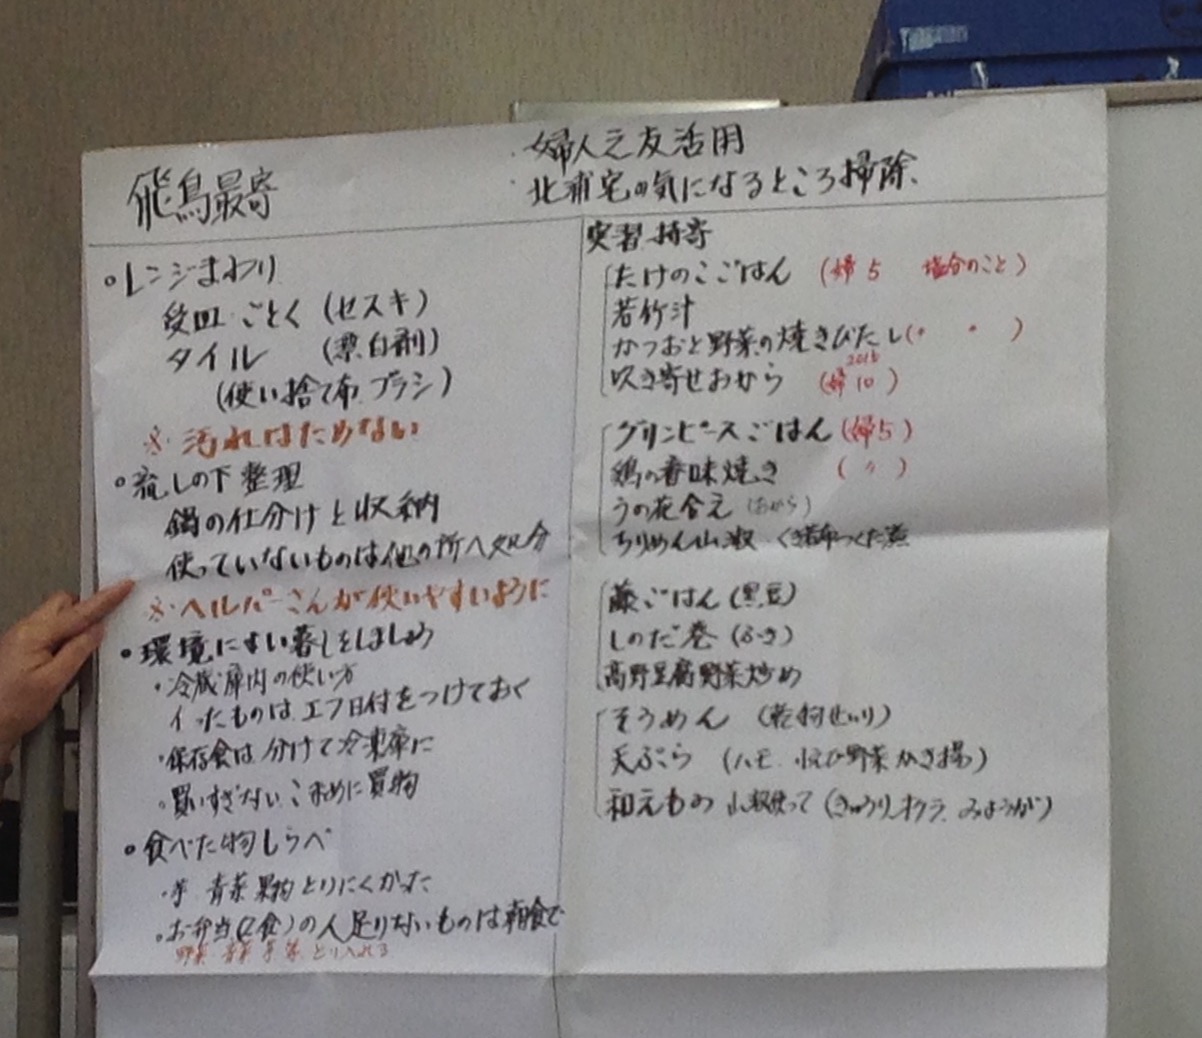 飛鳥最寄
・婦人之友活用
・北浦宅の気になるところ掃除、
。レンジまわり
受皿・ごとく(セスキ)
タイル (漂白剤)
(使い捨て布、ブラシ)
※・汚れはためない
。流しの下整理
鍋の仕分けと収納
使っていないものは他の所へ処分
※・ヘルパーさんが使いやすいように
・環境によい暮しをしましょう
・冷蔵庫内の使い方
イったものは、エフ日付をつけておく
・保存食は、分けて冷凍庫に
・買いすぎない、こまめに買物
。食べた物しらべ
・芋 青菜 果物 とりにくかった
・お弁当(2食)の人足りないものは朝食で
野菜 青菜 芋 等 とり入れる
実習・持寄
たけのこごはん (婦5 塩分のこと)
若竹汁
かつおと野菜の焼きびたし(〃 〃 )
吹き寄せおから (婦 2016 10)
グリンピースごはん(婦5)
鶏の香味焼き (〃)
うの花合え (おから)
ちりめん山椒 くき昆布つくだ煮
藤ごはん(黒豆)
しのだ巻(ふき)
高野豆腐野菜炒め
そうめん (乾物せいり)
天ぷら (ハモ、 野菜かき揚)
和えもの 山椒使って(きゅうり、オクラ、みょうが)